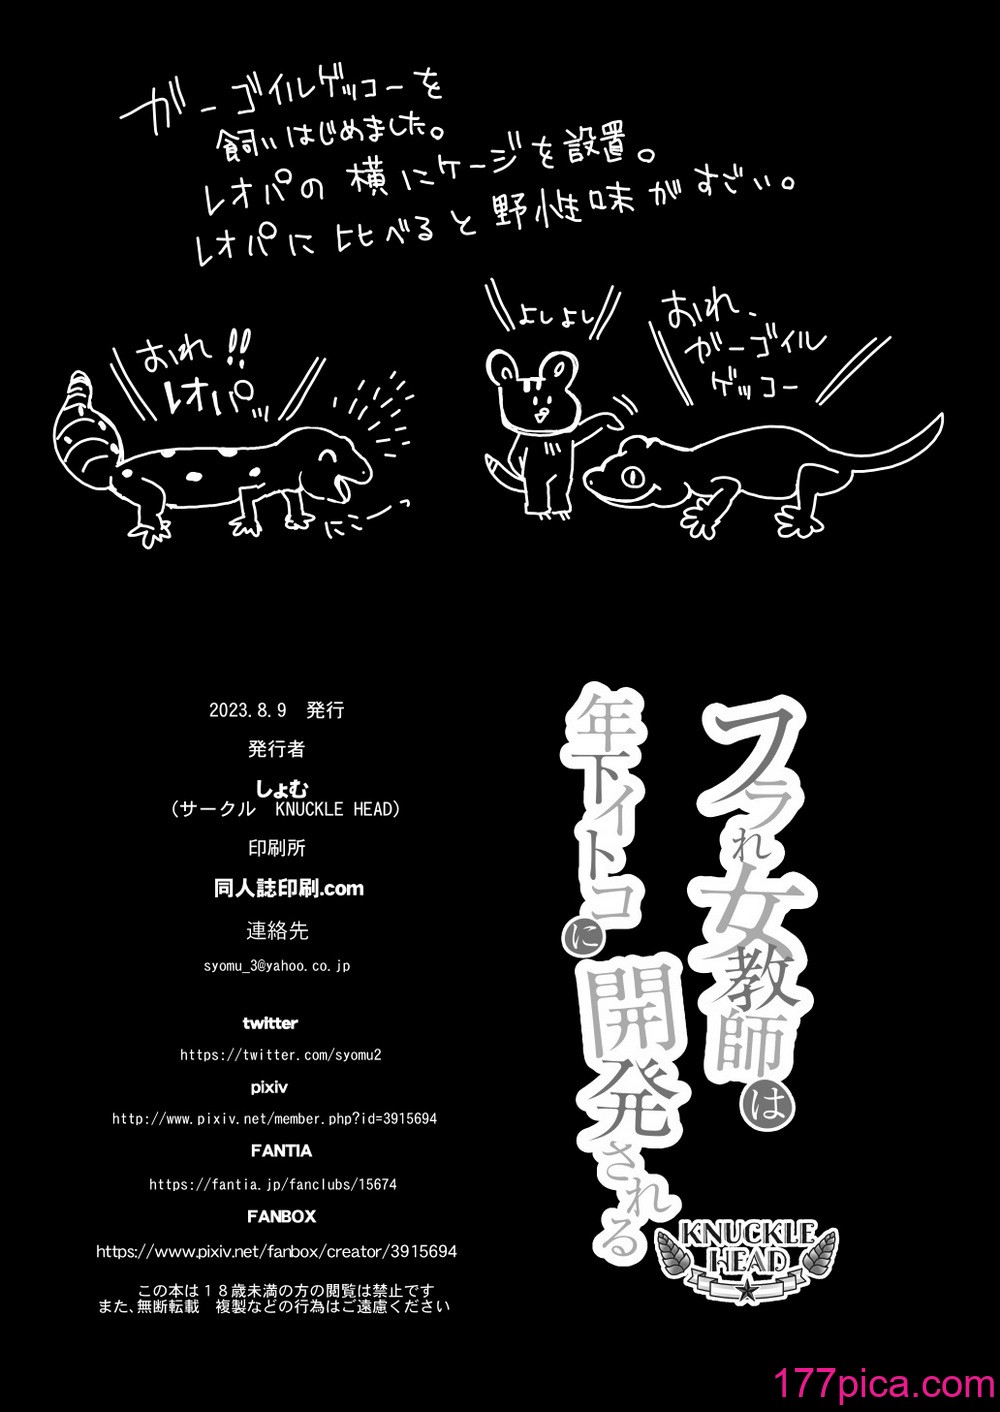 ガーゴイルゲッコーを
飼いはじめました。
レオパの横にケージを設置。
レオパに比べると野性味がすごい。
おれ!!
レオパッ
にこーっ
よしよし
おれ、
ガーゴイル
ゲッコー
フラれ女教師は
年下イトコに
開発される
KNUCKLE
HEAD
2023.8.9 発行
発行者
しょむ
(サークル KNUCKLE HEAD)
印刷所
同人誌印刷.com
連絡先
syomu_3@yahoo.co.jp
twitter
https://twitter.com/syomu2
pixiv
http://www.pixiv.net/member.php?id=3915694
FANTIA
https://fantia.jp/fanclubs/15674
FANBOX
https://www.pixiv.net/fanbox/creator/3915694
この本は18歳未満の方の閲覧は禁止です
また、無断転載 複製などの行為はご遠慮ください
177pica.com